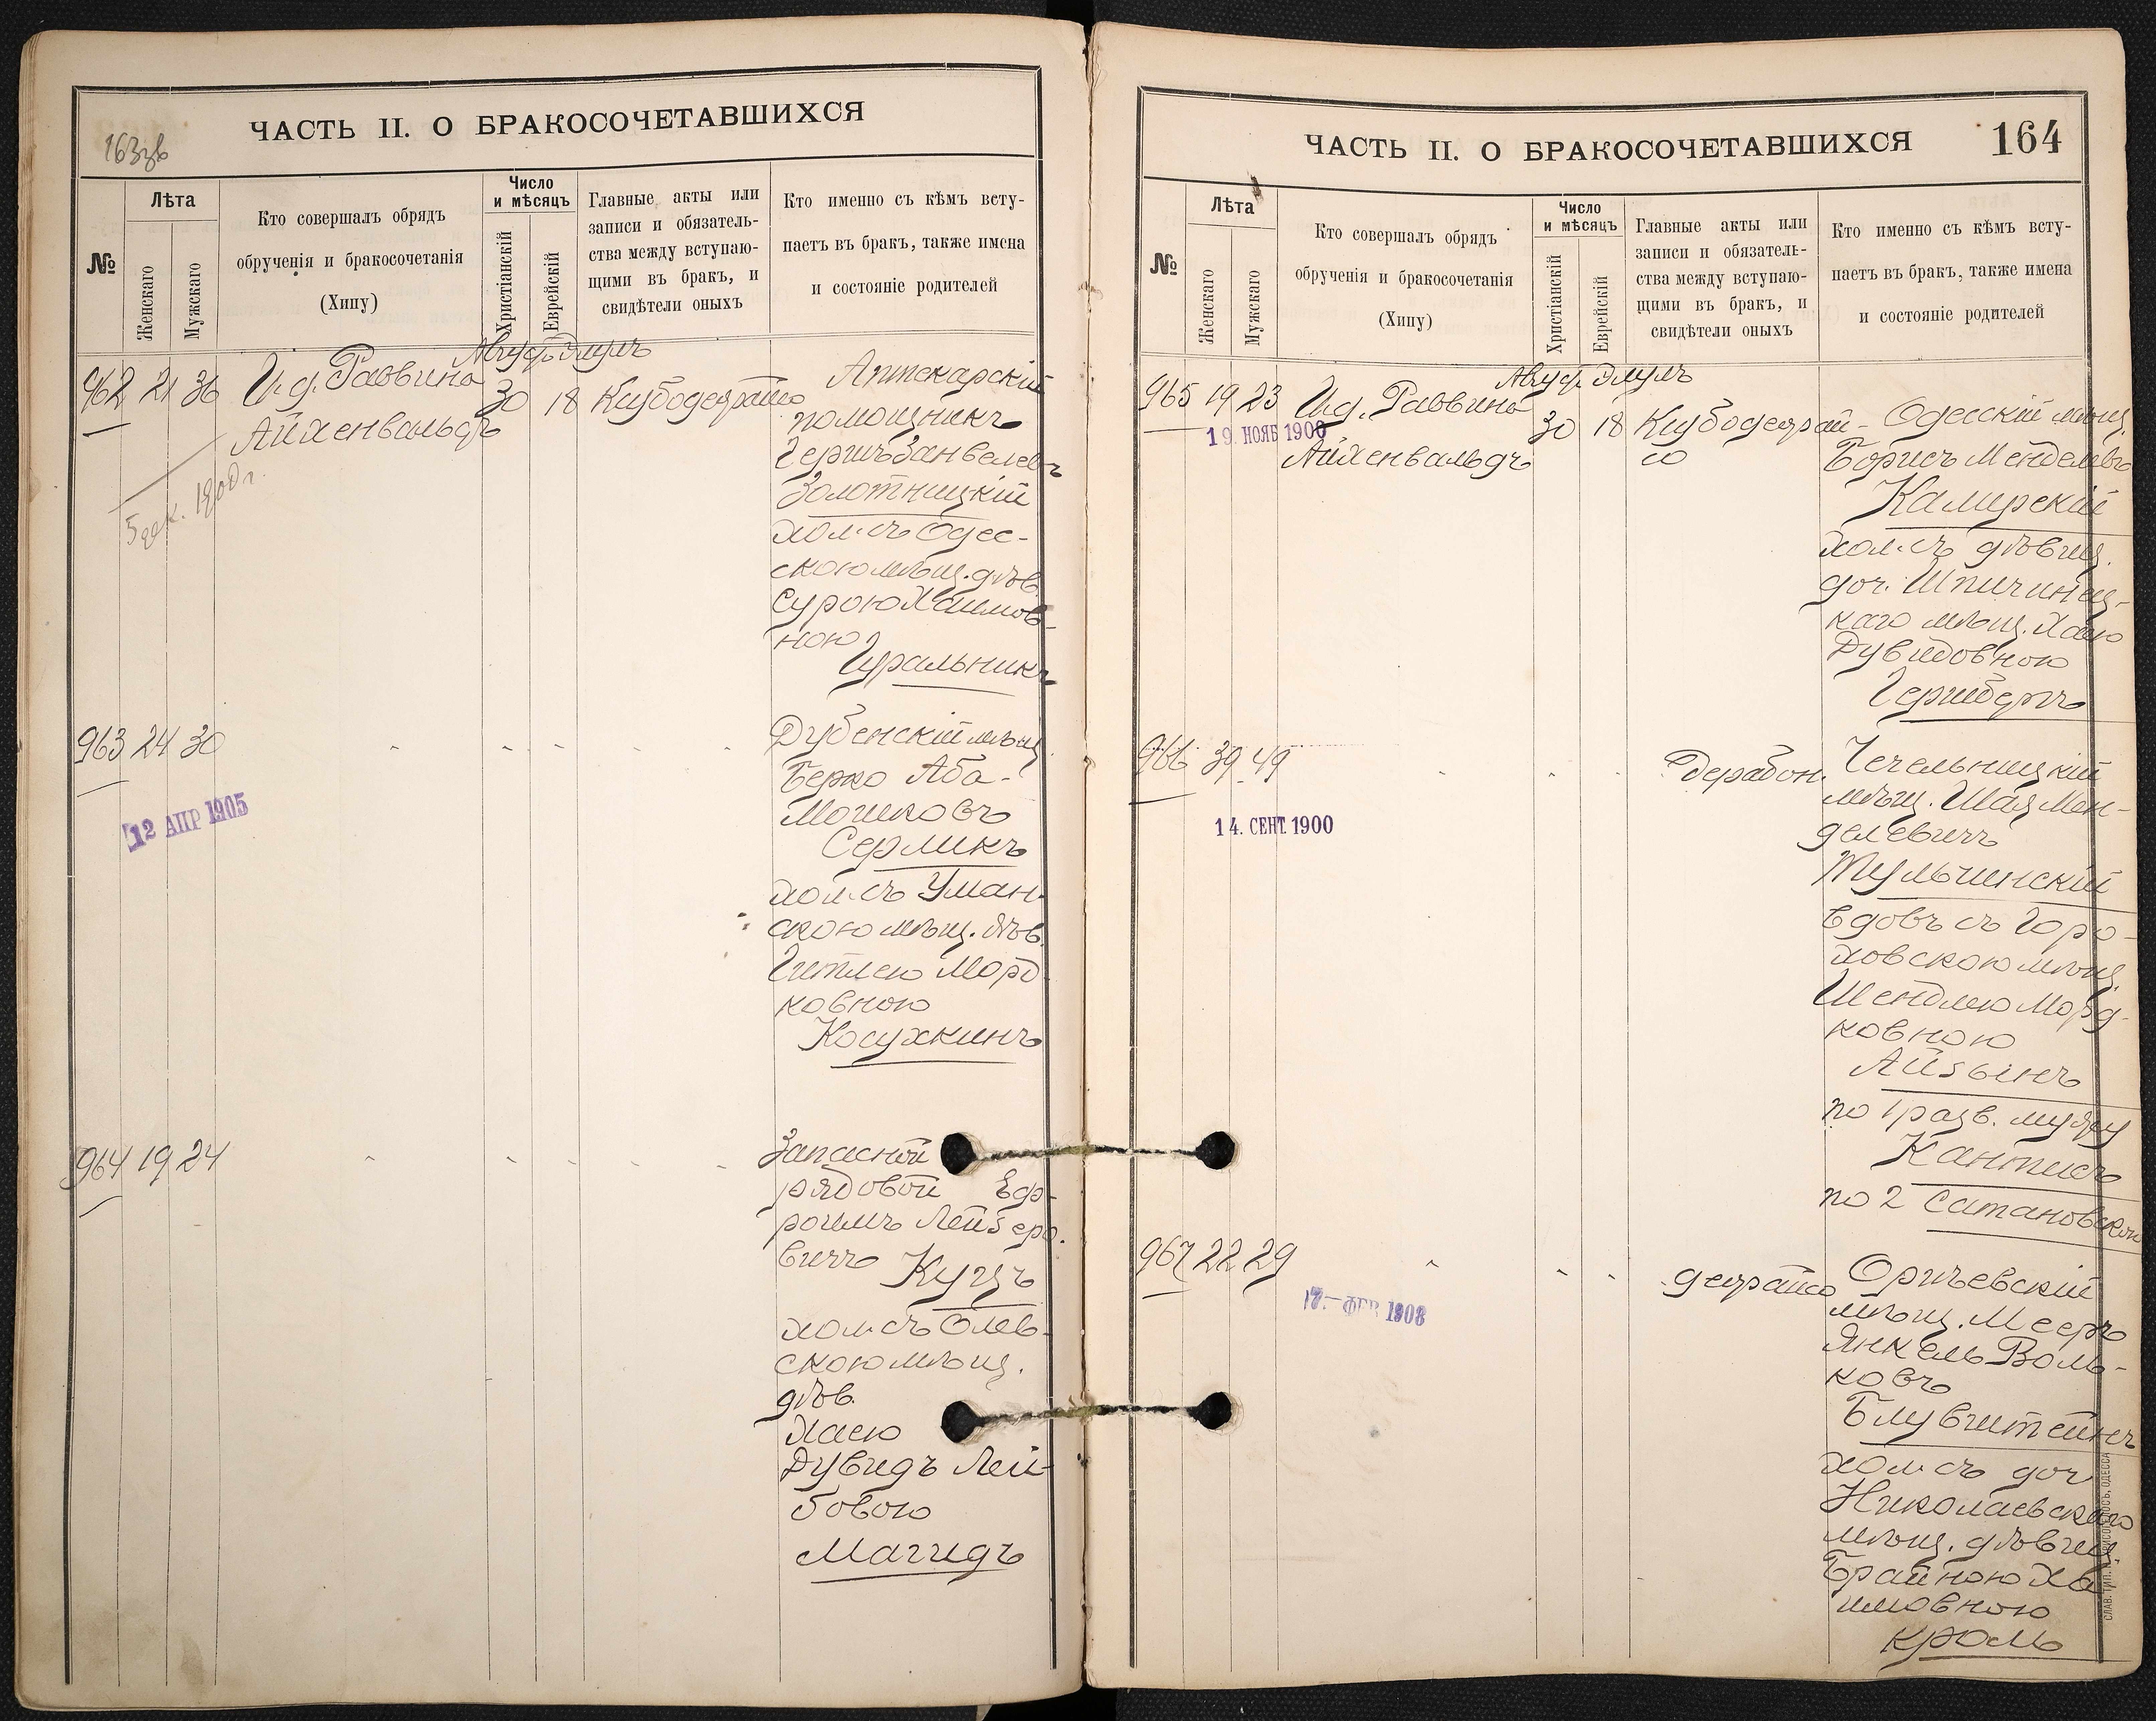 ЧАСТЬ II. О БРАКОСОЧЕТАВШИХСЯ
163зв
№
Лѣта
Женскаго
Мужскаго
Кто совершалъ обрядъ
обрученія и бракосочетанія
(Хипу)
Число
и мѣсяцъ
Христіанскій
Еврейскій
Главные акты или
записи и обязатель-
ства между вступаю-
щими въ бракъ, и
свидѣтели оныхъ
Кто именно съ кѣмъ всту-
паетъ въ бракъ, также имена
и состояніе родителей
Авгус. Элулъ
962 21 36 И.д. Раввина 30 18 Кибодеграйсо
Айхенвальдъ
5 дек. 1900 г.
Аптекарскій
помощникъ
Гершъ Занвелевъ
Золотницкій
хол. съ Одес-
скою мѣщ. дѣв.
Сурою Хаимов-
ною
Гуральникъ
963 24 30
12 АПР 1905
Дубенскій мѣщ.
Берко Аба-
Мошковъ
Серликъ
хол. съ Уман-
скою мѣщ. дѣв.
ГитлеюМорд-
ковною
Косухкинъ
964 19 24
Запасной
рядовой Еф-
роимъ Лейзеро-
вичъ Куцъ
хол. съ Олев-
скою мѣщ.
дѣв.
Хаею
Дувидъ Лей-
бовою
Магидъ
ЧАСТЬ II. О БРАКОСОЧЕТАВШИХСЯ
164
№
Лѣта
Женскаго
Мужскаго
Кто совершалъ обрядъ
обрученія и бракосочетанія
(Хипу)
Число
и мѣсяцъ
Христіанскій
Еврейскій
Главные акты или
записи и обязатель-
ства между вступаю-
щими въ бракъ, и
свидѣтели оныхъ
Кто именно съ кѣмъ всту-
паетъ въ бракъ, также имена
и состояніе родителей
Авгус. Элулъ
965 19 23 И.д. Раввина 30 18 Кибодеграй-
со
19. НОЯБ 1900
Айхенвальдъ
Одесскій мѣщ.
Борисъ Менделевъ
Камирскій
хол. съ дѣвиц.
доч. Шпичинец-
каго мѣщ. Хаею
Дувидовною
Гершбергъ
966 39 49
14. СЕНТ 1900
дерабон.
Чечельницкій
мѣщ. Шая Мен-
делевичъ
Тульчинскій
вдовъ съ Горо-
ховскою мѣщ.
Шендлею Морд-
ковною
Айзьинъ
по 1 разв. мужу
Кантисъ
по 2 Сатановской
967 22 29
7.- ФЕВ 1908
деграйсо
Оргѣевскій
мѣщ. Мееръ
Янкель Воль-
ковъ
Блувштейнъ
хол. съ доч
Николаевскаго
мѣщ. дѣвиц.
Брайною Ха-
имовною
Кроль